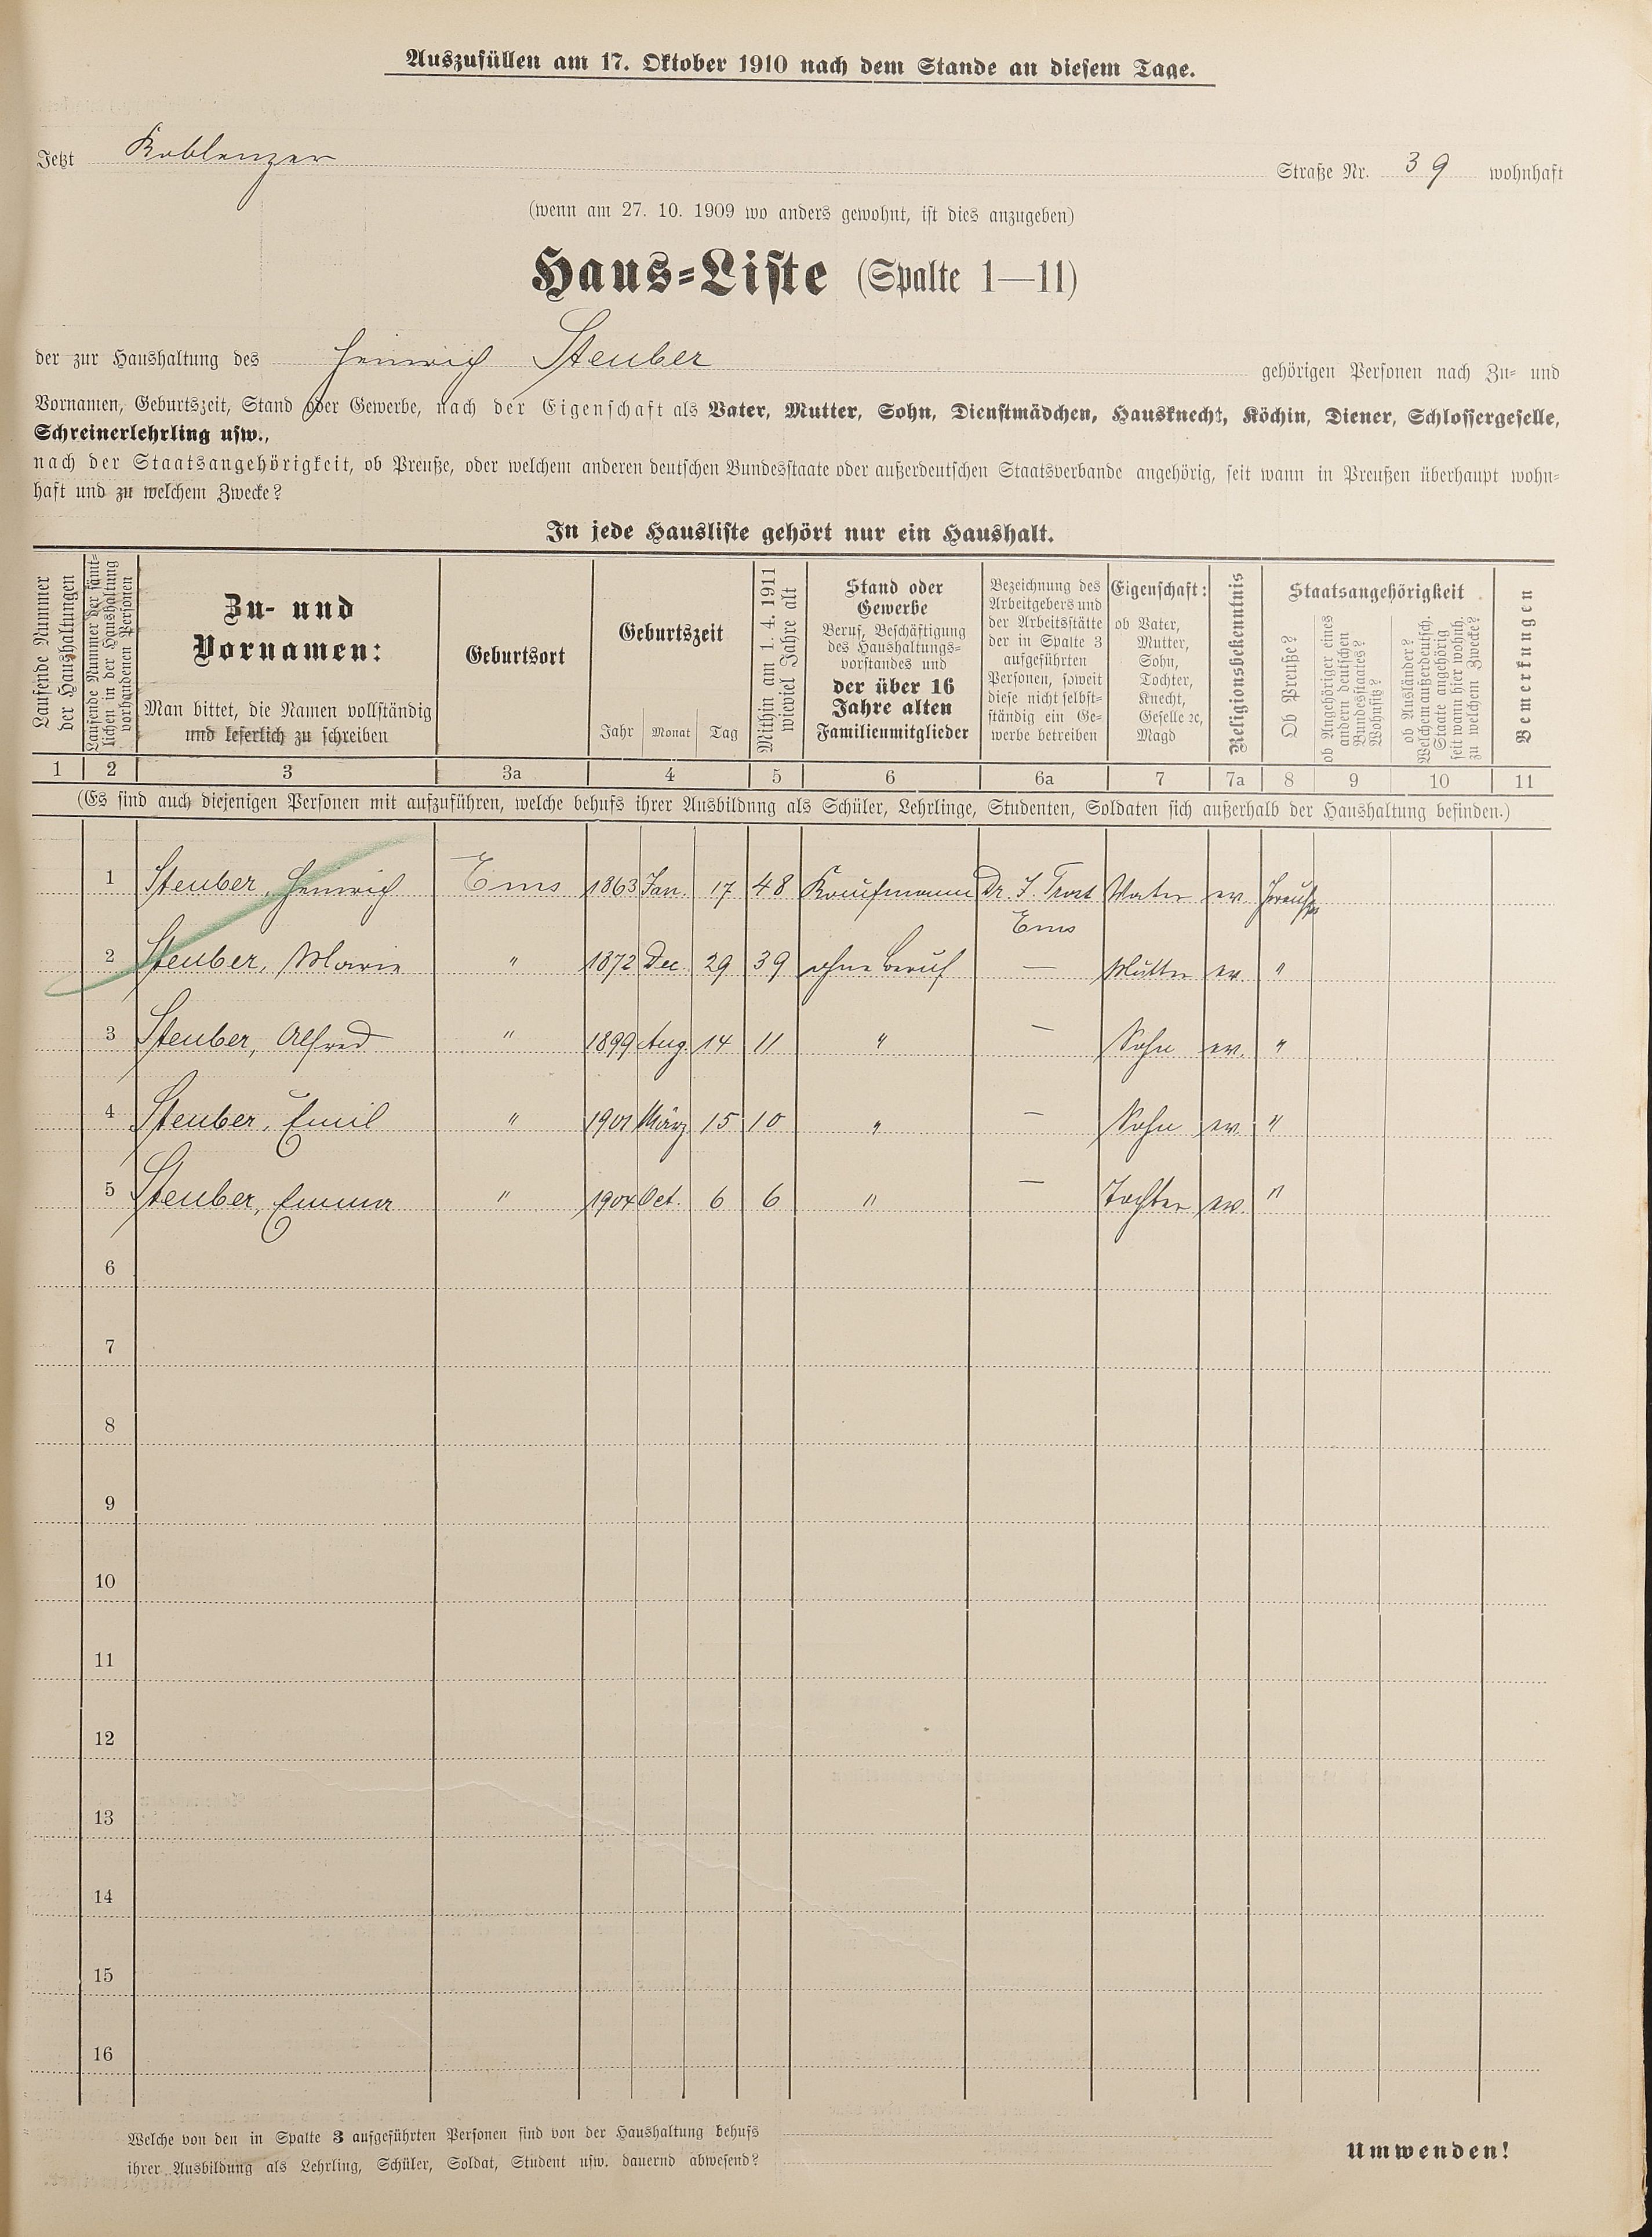 Auszufüllen am 17. Oktober 1910 nach dem Stande an diesem Tage.
Jetzt Koblenzer Straße Nr. 39 wohnhaft
(wenn am 27. 10. 1909 wo anders gewohnt, ist dies anzugeben)
Haus-Liste (Spalte 1—11)
der zur Haushaltung des Heinrich Steuber gehörigen Personen nach Zu- und
Vornamen, Geburtszeit, Stand oder Gewerbe, nach der Eigenschaft als Vater, Mutter, Sohn, Dienstmädchen, Hausknecht, Köchin, Diener, Schlossergeselle,
Schreinerlehrling usw.,
nach der Staatsangehörigkeit, ob Preuße, oder welchem anderen deutschen Bundesstaate oder außerdeutschen Staatsverbande angehörig, seit wann in Preußen überhaupt wohn-
haft und zu welchem Zwecke?
In jede Hausliste gehört nur ein Haushalt.
Laufende Nummer
der Haushaltungen
Laufende Nummer der sämt-
lichen in der Haushaltung
vorhandenen Personen
Zu- und
Vornamen:
Man bittet, die Namen vollständig
und leserlich zu schreiben
Geburtsort
Geburtszeit
Jahr Monat Tag
Mithin am 1. 4. 1911
wieviel Jahre alt
Stand oder
Gewerbe
Beruf, Beschäftigung
des Haushaltungs-
vorstandes und
der über 16
Jahre alten
Familienmitglieder
Bezeichnung des
Arbeitgebers und
der Arbeitsstätte
der in Spalte 3
aufgeführten
Personen, soweit
diese nicht selbst-
ständig ein Ge-
werbe betreiben
Eigenschaft:
ob Vater,
Mutter,
Sohn,
Tochter,
Knecht,
Geselle ꝛc,
Magd
Religionsbekenntnis
Staatsangehörigkeit
Ob Preuße?
ob Angehöriger eines
andern deutschen
Bundesstaates?
Wohnsitz?
ob Ausländer?
Welchem außerdeutsch.
Staate angehörig
seit wann hier wohnh.
zu welchem Zwecke?
Bemerkungen
1 2 3 3a 4 5 6 6a 7 7a 8 9 10 11
(Es sind auch diejenigen Personen mit aufzuführen, welche behufs ihrer Ausbildung als Schüler, Lehrlinge, Studenten, Soldaten sich außerhalb der Haushaltung befinden.)
1 Steuber, Heinrich Ems 1863 Jan. 17 48 Kaufmann Dr. Vater ev. Preuße
Ems
2 Steuber, Marie " 1872 Dec. 29 39 ohne Beruf — Mutter ev. "
3 Steuber, Alfred " 1899 Aug. 14 11 " — Sohn ev. "
4 Steuber, Emil " 1901 März 15 10 " — Sohn ev. "
5 Steuber, Emma " 1904 Oct. 6 6 " — Tochter ev. "
6
7
8
9
10
11
12
13
14
15
16
Welche von den in Spalte 3 aufgeführten Personen sind von der Haushaltung behufs
ihrer Ausbildung als Lehrling, Schüler, Soldat, Student usw. dauernd abwesend?
Umwenden!